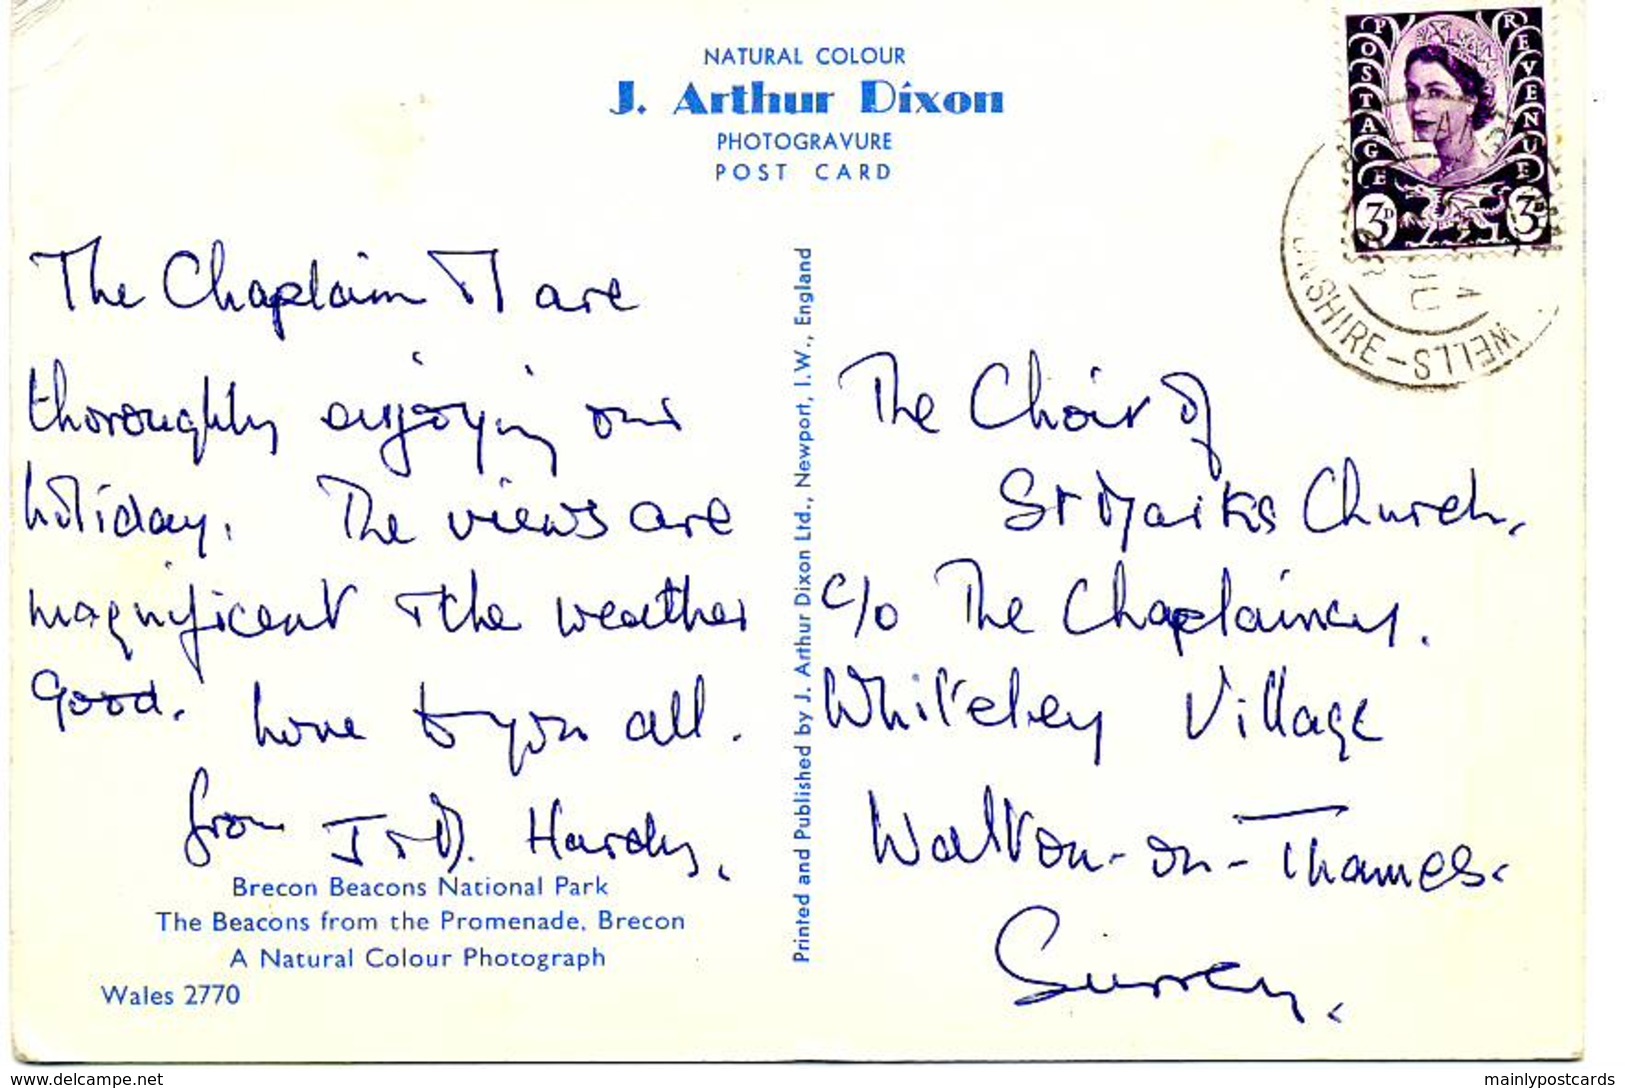 NATURAL COLOUR
J. Arthur Dixon
PHOTOGRAVURE
POST CARD
POSTAGE
REVENUE
3D
3D
SHIRE-WELLS
The Chaplain & I are
thoroughly enjoying our
holiday. The views are
magnificent & the weather
good. love to you all.
from J & D. Hardy.
Brecon Beacons National Park
The Beacons from the Promenade, Brecon
A Natural Colour Photograph
Wales 2770
Printed and Published by J. Arthur Dixon Ltd., Newport, I.W., England
The Choir of
St Marks Church,
c/o The Chaplaincy.
Whiteley Village
Walton-on-Thames.
Surrey.
www.delcampe.net
mainlypostcards